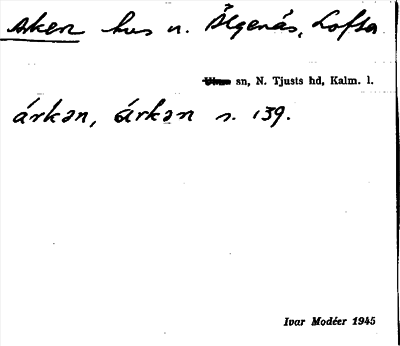 Arken hus n. Älgenäs, Lofta
sn, N. Tjusts hd, Kalm. l.
árkən, árkən s. 139.
Ivar Modéer 1945